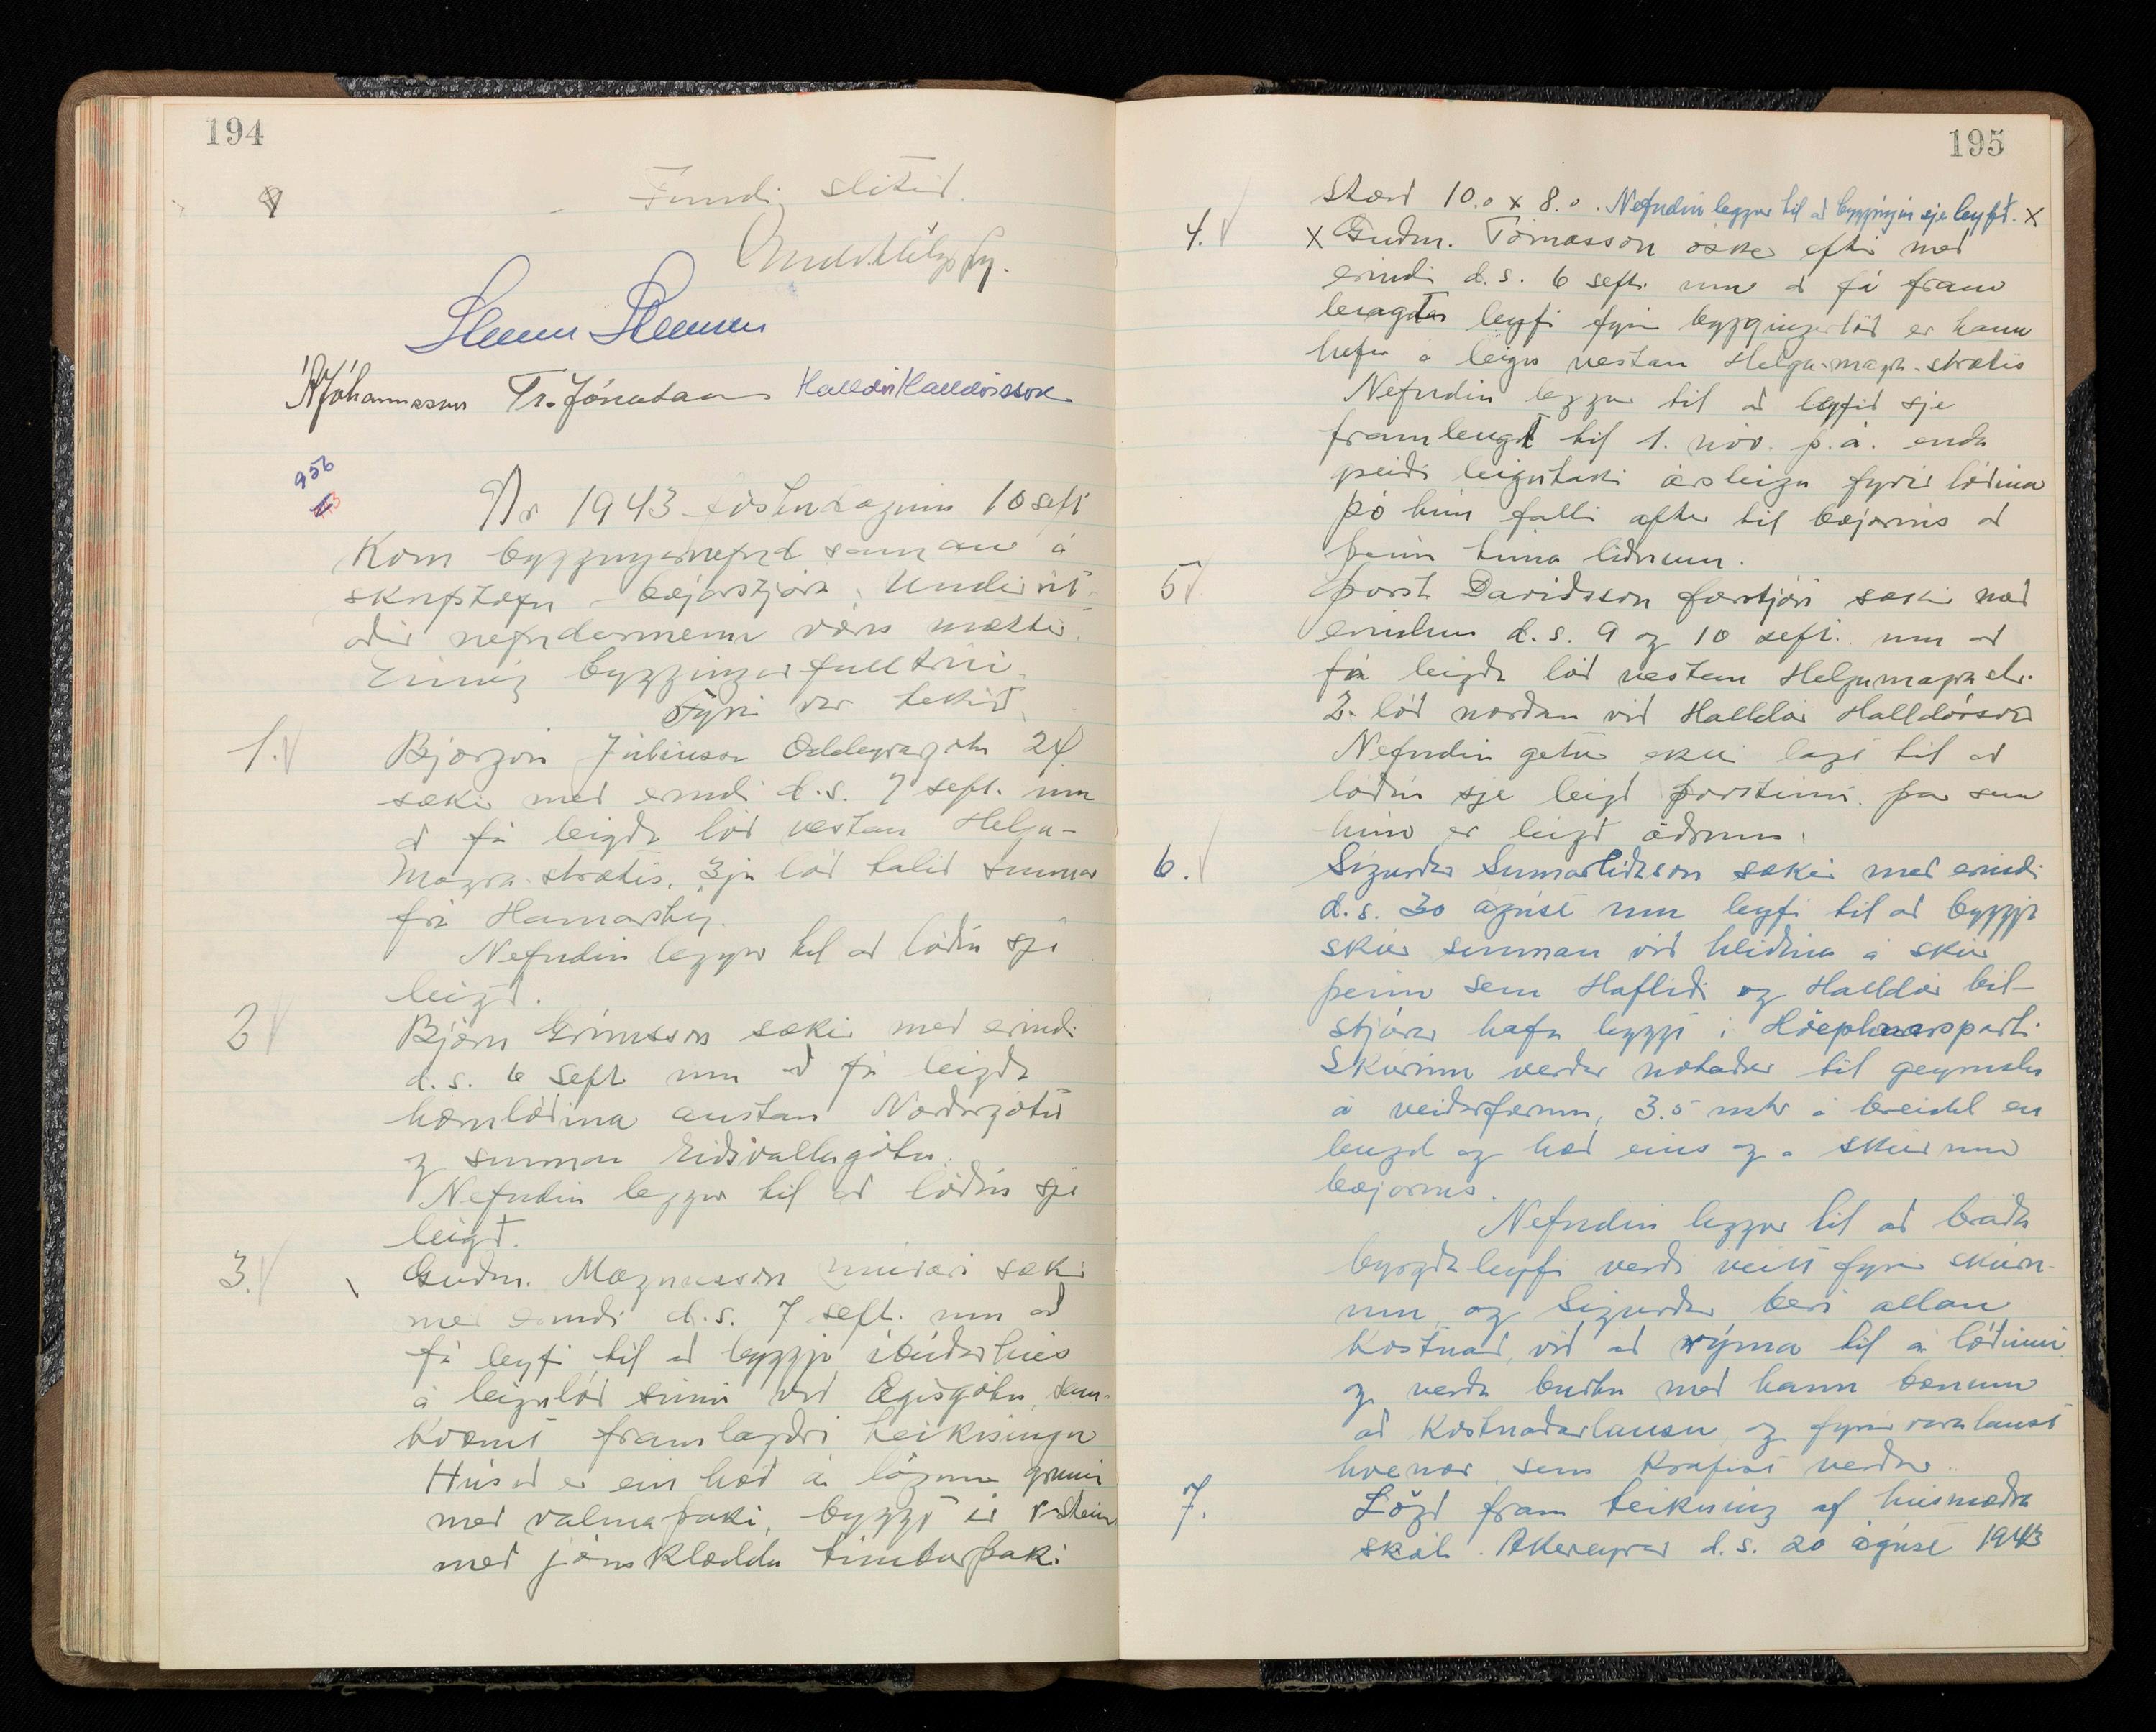 194
Fundi slitid.
Steinn Steinsen
ÁJóhannsson Tr. Jónatansson Halldór Halldórsson
956
Ár 1943 föstudaginn 10 sept
kom byggingarnefnd saman á
skrifstofu bæjarstjóra. Undirrit-
aðir nefndarmenn voru mættir.
Einnig byggingarfulltrúi.
Fyrir var tekið
1. Björgvin Júlíusson Oddeyrargötu 24
sækir með erindi d.s. 7 sept. um
að fá leigða lóð vestan Helga-
magra-strætis, 3ja lóð talið sunnar
frá Hamarstíg.
Nefndin leggur til að lóðin sje
leigð.
2 Björn Grímsson sækir með erindi
d.s. 6 sept um að fá leigða
hornlóðina austan Norðurgötu
og sunnan Eiðsvallagötu.
Nefndin leggur til að lóðin sje
leigð.
3. Guðm. Magnússon múrari sækir
með erindi d.s. 7 sept. um að
fá leyfi til að byggja íbúðarhús
á leigulóð sinni við Ægisgötu, sam-
kvæmt framlagðri teikningu
Húsið er ein hæð á lágum grunni
með valmaþaki, byggt úr r-steini
með járnklæddu timburþaki
195
Stærð 10.0 x 8.0. Nefndin leggur til að byggingin sje leyfð. x
4. x Guðm. Tómasson óskar eftir með
erindi d.s. 6 sept. um að fá fram
lengdan leyfi fyrir byggingarlóð er hann
hefur á leigu vestan Helga-magra-strætis
Nefndin leggur til að leyfið sje
framlengt til 1. nóv. þ.á. enda
greiði leigutaki ársleigu fyrir lóðina
þó hún falli aftur til bæjarins að
þeim tíma liðnum.
5 Þorst. Davíðsson forstjóri sækir með
erindum d.s. 9 og 10 sept. um að
fá leigða lóð vestan Helgamagrastr.
2. lóð norðan við Halldór Halldórsson
Nefndin getur ekki lagt til að
lóðin sje leigð Þorsteini, þar sem
hún er leigð öðrum.
6. Sigurður Sumarliðason sækir með erindi
d.s. 30 ágúst um leyfi til að byggja
skúr sunnan við hliðina á skúr
þeim sem Hafliði og Halldór bíl-
stjórar hafa byggt í Höephnersparti
Skúrinn verður notaður til geymslu
á veiðarfærum, 3.5 mtr á breidd en
lengd og hæð eins og á skúrum
bæjarins.
Nefndin leggur til að bráða
byrgðaleyfi verði veitt fyrir skúrn-
um og Sigurður beri allan
kostnað við að rýma til á lóðinni
og verða burtu með hann bænum
að kostnaðarlausu og fyrirvaralaust
hvenær sem krafist verður.
7. Lögð fram teikning af húsmæðra
skóla Akureyrar d.s. 20 ágúst 1943